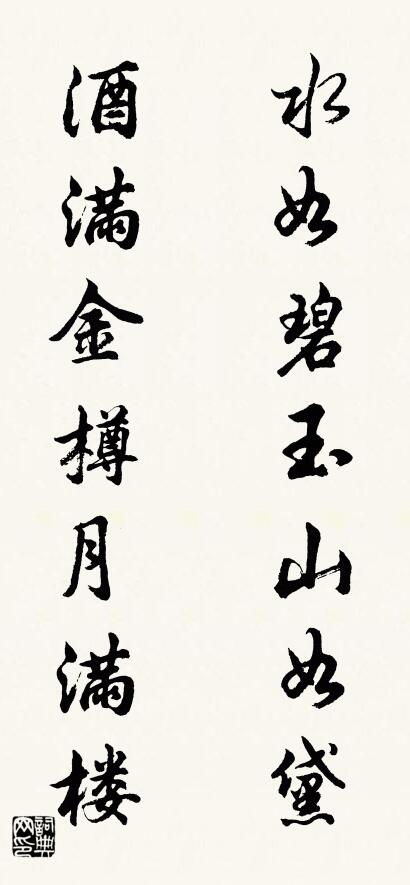 水如碧玉山如黛
酒满金樽月满楼
詞典网印